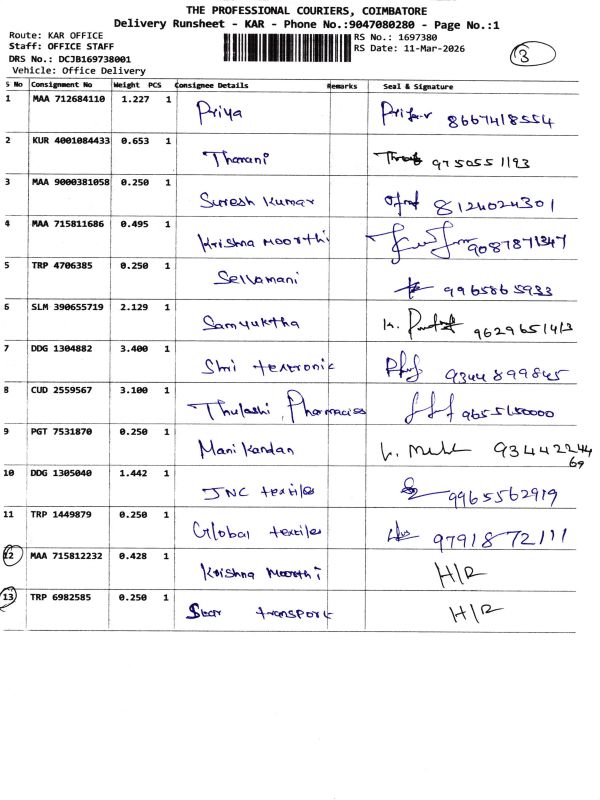 THE PROFESSIONAL COURIERS, COIMBATORE
Delivery Runsheet - KAR - Phone No.:9047080280 - Page No.:1
Route: KAR OFFICE
Staff: OFFICE STAFF
DRS No.: DCJB169738001
Vehicle: Office Delivery
RS No.: 1697380
RS Date: 11-Mar-2026
3
S No Consignment No Weight PCS Consignee Details Remarks Seal & Signature
1 MAA 712684110 1.227 1 Priya 8667418554
2 KUR 4001084433 0.653 1 Tharani 9750551193
3 MAA 9000381058 0.250 1 Suresh Kumar 8124024301
4 MAA 715811686 0.495 1 Krishna Moorthi 9087871347
5 TRP 4706385 0.250 1 Selvamani 9965865933
6 SLM 390655719 2.129 1 Samyuktha
7 DDG 1304882 3.400 1 Shri textronic 9344899845
8 CUD 2559567 3.100 1 Thulashi Pharmacies
9 PGT 7531870 0.250 1 Manikandan 93442244
69
10 DDG 1305040 1.442 1 JNC textiles 9965562919
11 TRP 1449879 0.250 1 Global textiles 9791872111
12 MAA 715812232 0.428 1 Krishna Moorthi H/R
13 TRP 6982585 0.250 1 Star transport H/R